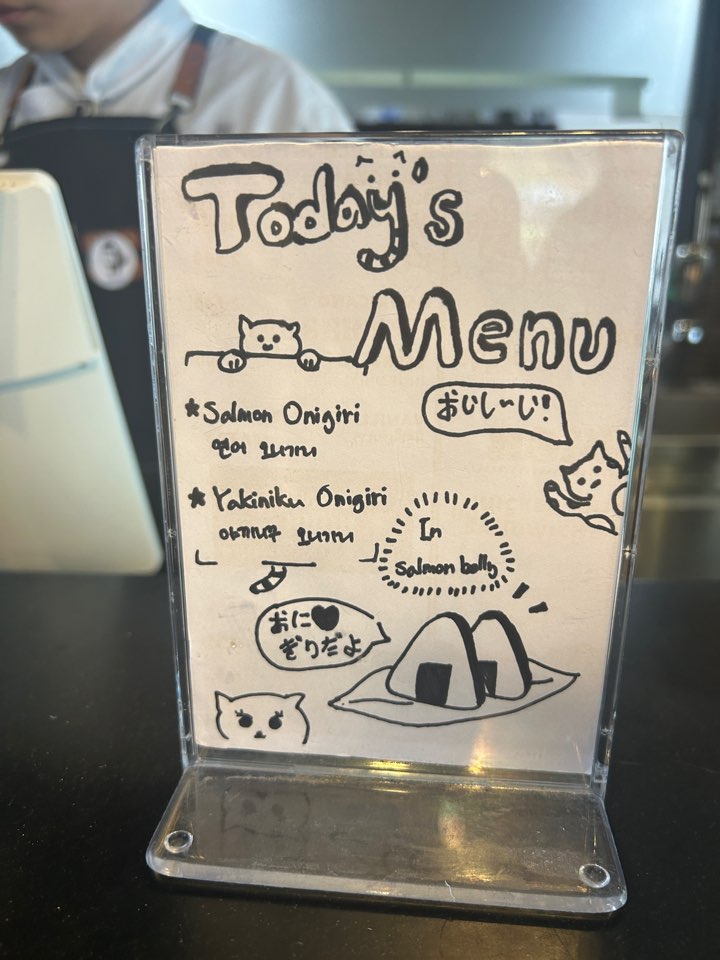 Today's
Menu
おいし〜い!
*Salmon Onigiri
연어 오니기리
* Yakiniku Onigiri
야끼니꾸 오니기리
In
Salmon belly
おに♥
ぎりだよ